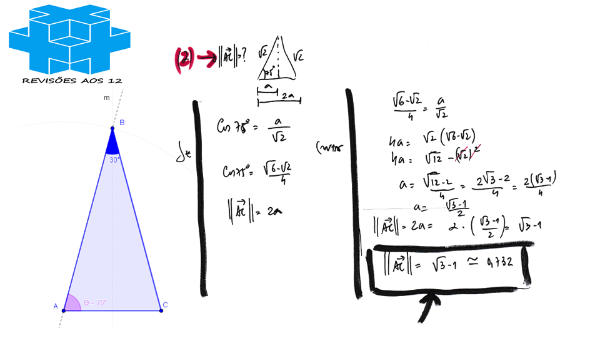 REVISÕES AOS 12
m
B
30°
A
θ = 75°
C
(2) → ||AC|| = ?
√2
√2
75°
a
2a
Cos 75° = a/√2
Cos 75° = (√6-√2)/4
||AC|| = 2a
(√6-√2)/4 = a/√2
4a = √2 (√6-√2)
4a = √12 - (√2)²
a = (√12-2)/4 = (2√3-2)/4 = 2(√3-1)/4
a = (√3-1)/2
||AC|| = 2a = 2 · ((√3-1)/2) = √3-1
||AC|| = √3-1 ≃ 0,732